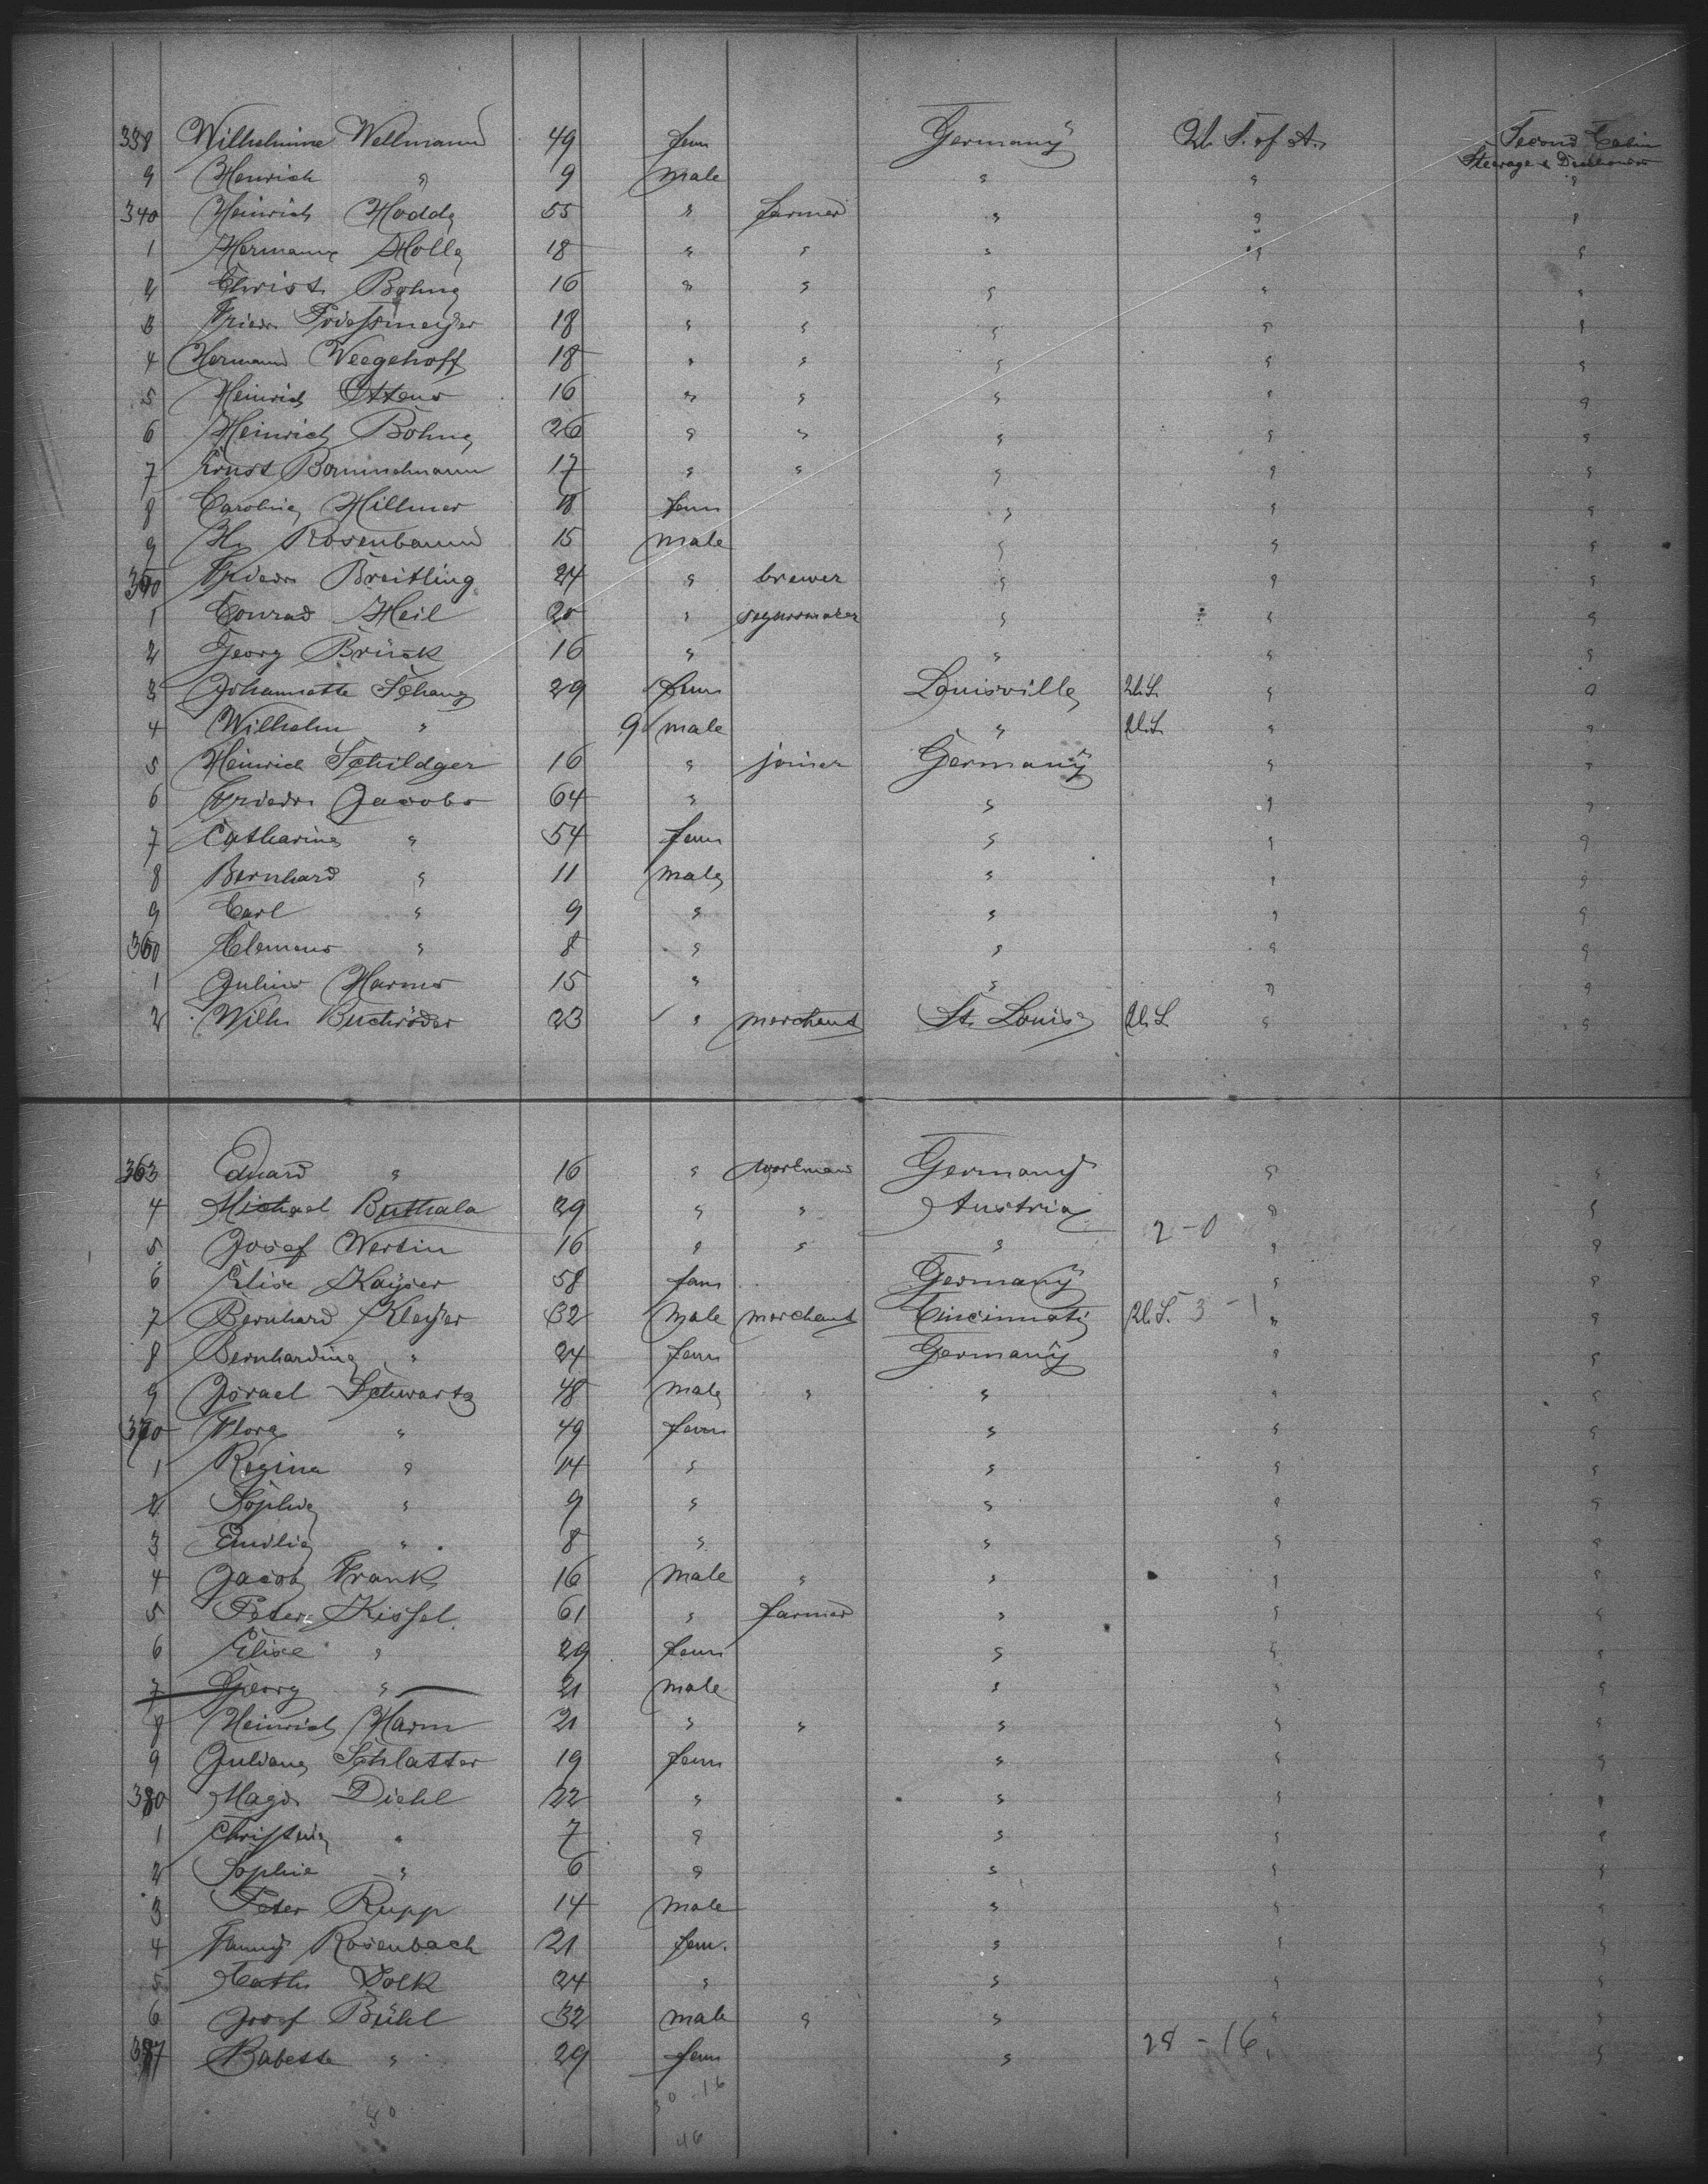 338 Wilhelmine Wellmann 49 fem Germany U. S. of A. Second Cabin
Steerage &
9 Henrich " 9 male " " "
340 Heinrich 55 " farmer " " "
1 Hermann Holle 18 " " " " "
2 Christ. Böhne 16 " " " " "
3 Friedr. 18 " " " " "
4 Hermann Weegehoff 18 " " " " "
5 Heinrich Ottens 16 " " " " "
6 Heinrich Böhne 26 " " " " "
7 Ernst 17 " " " " "
8 Caroline Hillmer 18 fem " " "
9 H. Rosenbaum 15 male " " "
350 Friedr. Breitling 24 " brewer " " "
1 Conrad Heil 20 " " " "
2 Georg Brück 16 " " " "
3 Johannette Schang 29 fem Louisville U.S. " "
4 Wilhelm " 9 male " U.S. " "
5 Heinrich Schildger 16 " joiner Germany " "
6 Friedr. Jacobs 64 " " " "
7 Catharine " 54 fem " " "
8 Bernhard " 11 male " " "
9 Carl " 9 " " " "
360 Clemens " 8 " " " "
1 Julius Harms 15 " " " "
2 Wilh. Buchröder 23 " merchant St. Louis U.S. " "
363 Eduard " 16 " workman Germany " "
4 Michael Buthala 29 " " Austria " "
2 - 0
5 Josef Wertin 16 " " " " "
6 Elise Kayser 58 fem Germany " "
7 Bernhard Kleyer 32 male merchant Cincinnati U.S. 3 - 1 " "
8 Bernhardine " 24 fem Germany " "
9 Israel Schwartz 48 male " " " "
370 Flora " 49 fem " " "
1 Regina " 14 " " " "
2 Sophie " 9 " " " "
3 Emilie " 8 " " " "
4 Jacob Frank 16 male " " " "
5 Peter Kissel 61 " farmer " " "
6 Elise " 29 fem " " "
7 Georg " 21 male " " "
8 Heinrich Harm 21 " " " " "
9 Juliane Schlatter 19 fem " " "
380 Magd. Diehl 22 " " " "
1 Christine " 7 " " " "
2 Sophie " 6 " " " "
3 Peter Rupp 14 male " " "
4 Fanny Rosenbach 21 fem. " " "
5 Cath. Volk 24 " " " "
6 Josef Bühl 32 male " " " "
28 - 16
387 Babette " 29 fem " "
30 - 16
80
46